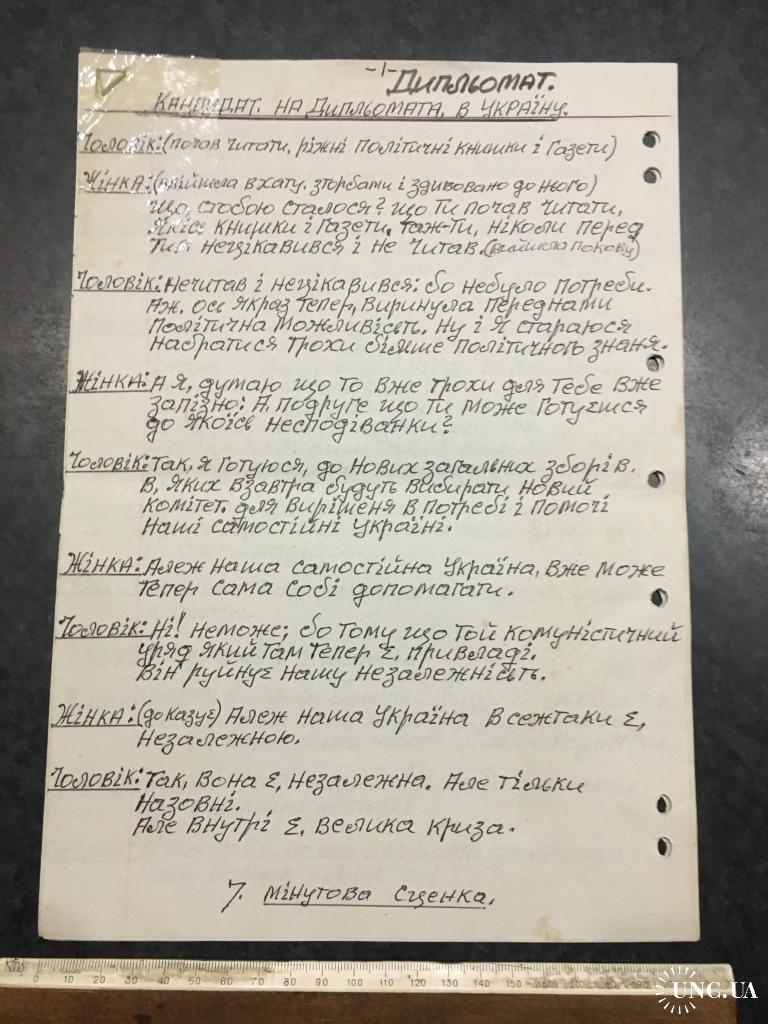 -1-
Дипльомат.
Кандидат. на Дипльомата. в Україну.
Чоловік:(почав читати, ріжні політичні книшки і газети)
Жінка:(прийшла в хату. зторбами і здивовано до нього)
Що, стобою сталося? що ти почав читати,
якісь книшки і газети, таж-ти, ніколи перед
тим нецікавився і не читав.(вийшла покову)
Чоловік: Нечитав і нецікавився: бо небуло потреби.
Аж. ось якраз тепер, виринула переднами
політична можливість. Ну і я стараюся
набратися трохи більше політичного знаня.
Жінка: А я, думаю що то вже трохи для тебе вже
запізно: А, подруге що ти може готуєшся
до якоїсь несподіванки?
Чоловік: Так, я готуюся, до нових загальних зборів.
В, яких взавтра будуть вибирати новий
комітет. для вирішеня в потребі і помочі
наші самостійні Україні.
Жінка: Алеж наша самостійна Україна, вже може
тепер сама собі допомагати.
Чоловік: Ні! неможе; бо тому що той комуністичний
уряд який там тепер є, привладі.
Він руйнує нашу незалежність.
Жінка:(доказує) Алеж наша Україна всежтаки є,
незалежною.
Чоловік: Так, вона є, незалежна. Але тільки
назовні.
Але внутрі є, велика криза.
7. мінутова сценка.
0 10 20 30 40 50 60 70 80 90 100 110 120 130 140 150 160 170 180 190
UNC.UA